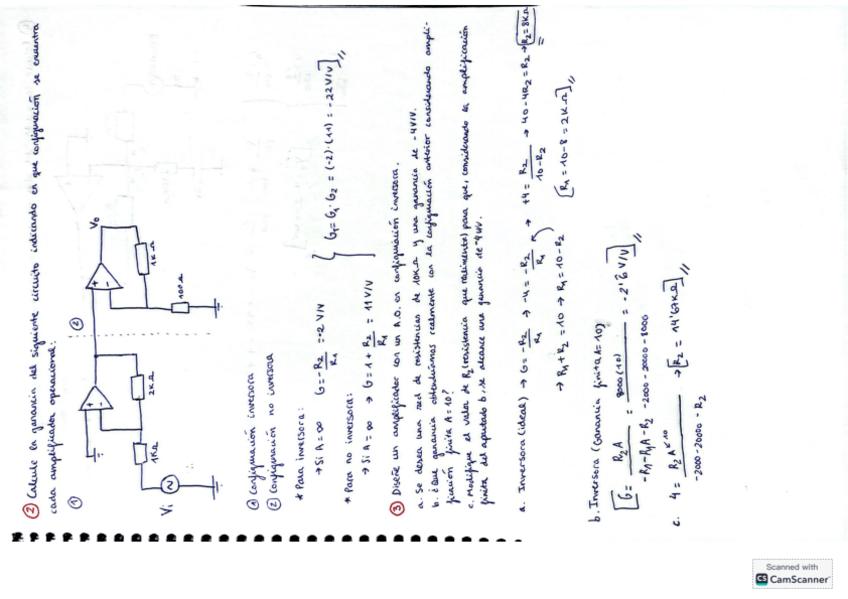 ② Calcule la ganancia del siguiente circuito indicando en que configuración se encuentra
cada amplificador operacional.
①
②
Vi
1KΩ
2KΩ
+
-
+
-
Vo
1KΩ
100Ω
① Configuración inversora
② Configuración no inversora
* Para inversora:
→ Si A = ∞ G = -R2/R1 = -2 V/V
* Para no inversora:
→ Si A = ∞ → G = 1 + R2/R1 = 11 V/V
G = G1 · G2 = (-2) · (11) = -22 V/V] //
③ Diseñe un amplificador con un A.O. en configuración inversora.
a. Se desea una red de resistencias de 10KΩ y una ganancia de -4V/V.
b. ¿Que ganancia obtendríamos realmente con la configuración anterior considerando ampli-
ficación finita A = 10?
c. Modifique el valor de R2 (resistencia que realimenta) para que, considerando la amplificación
finita del apartado b, se alcance una ganancia de -4V/V.
a. Inversora (ideal) → G = -R2/R1 → -4 = -R2/R1 → +4 = R2/10-R2 → 40-4R2 = R2 → R2 = 8KΩ
→ R1 + R2 = 10 → R1 = 10 - R2
[R1 = 10 - 8 = 2KΩ] //
b. Inversora (Ganancia finita A = 10)
[G = R2A/-R1-R1A-R2 = 8000(10)/-2000-20000-8000 = -2'6 V/V] //
c. 4 = R2A 10/-2000-20000-R2 → [R2 = 14'67KΩ] //
Scanned with
CS CamScanner